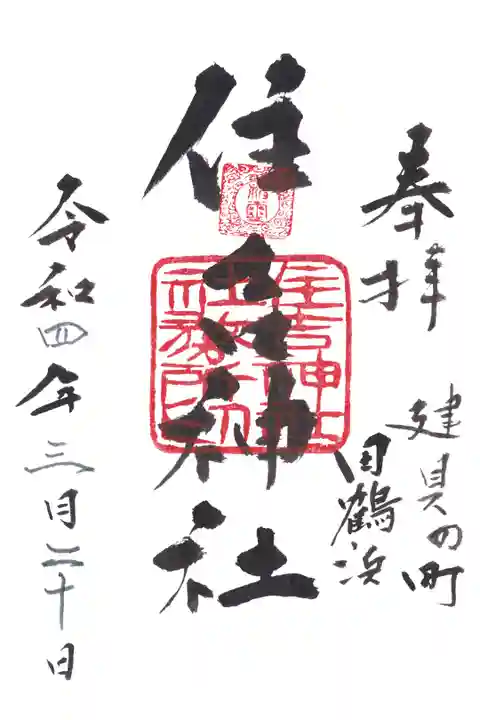 奉拝
建具の町
田鶴浜
住吉神社
住吉神社
社務所印
令和四年三月二十日